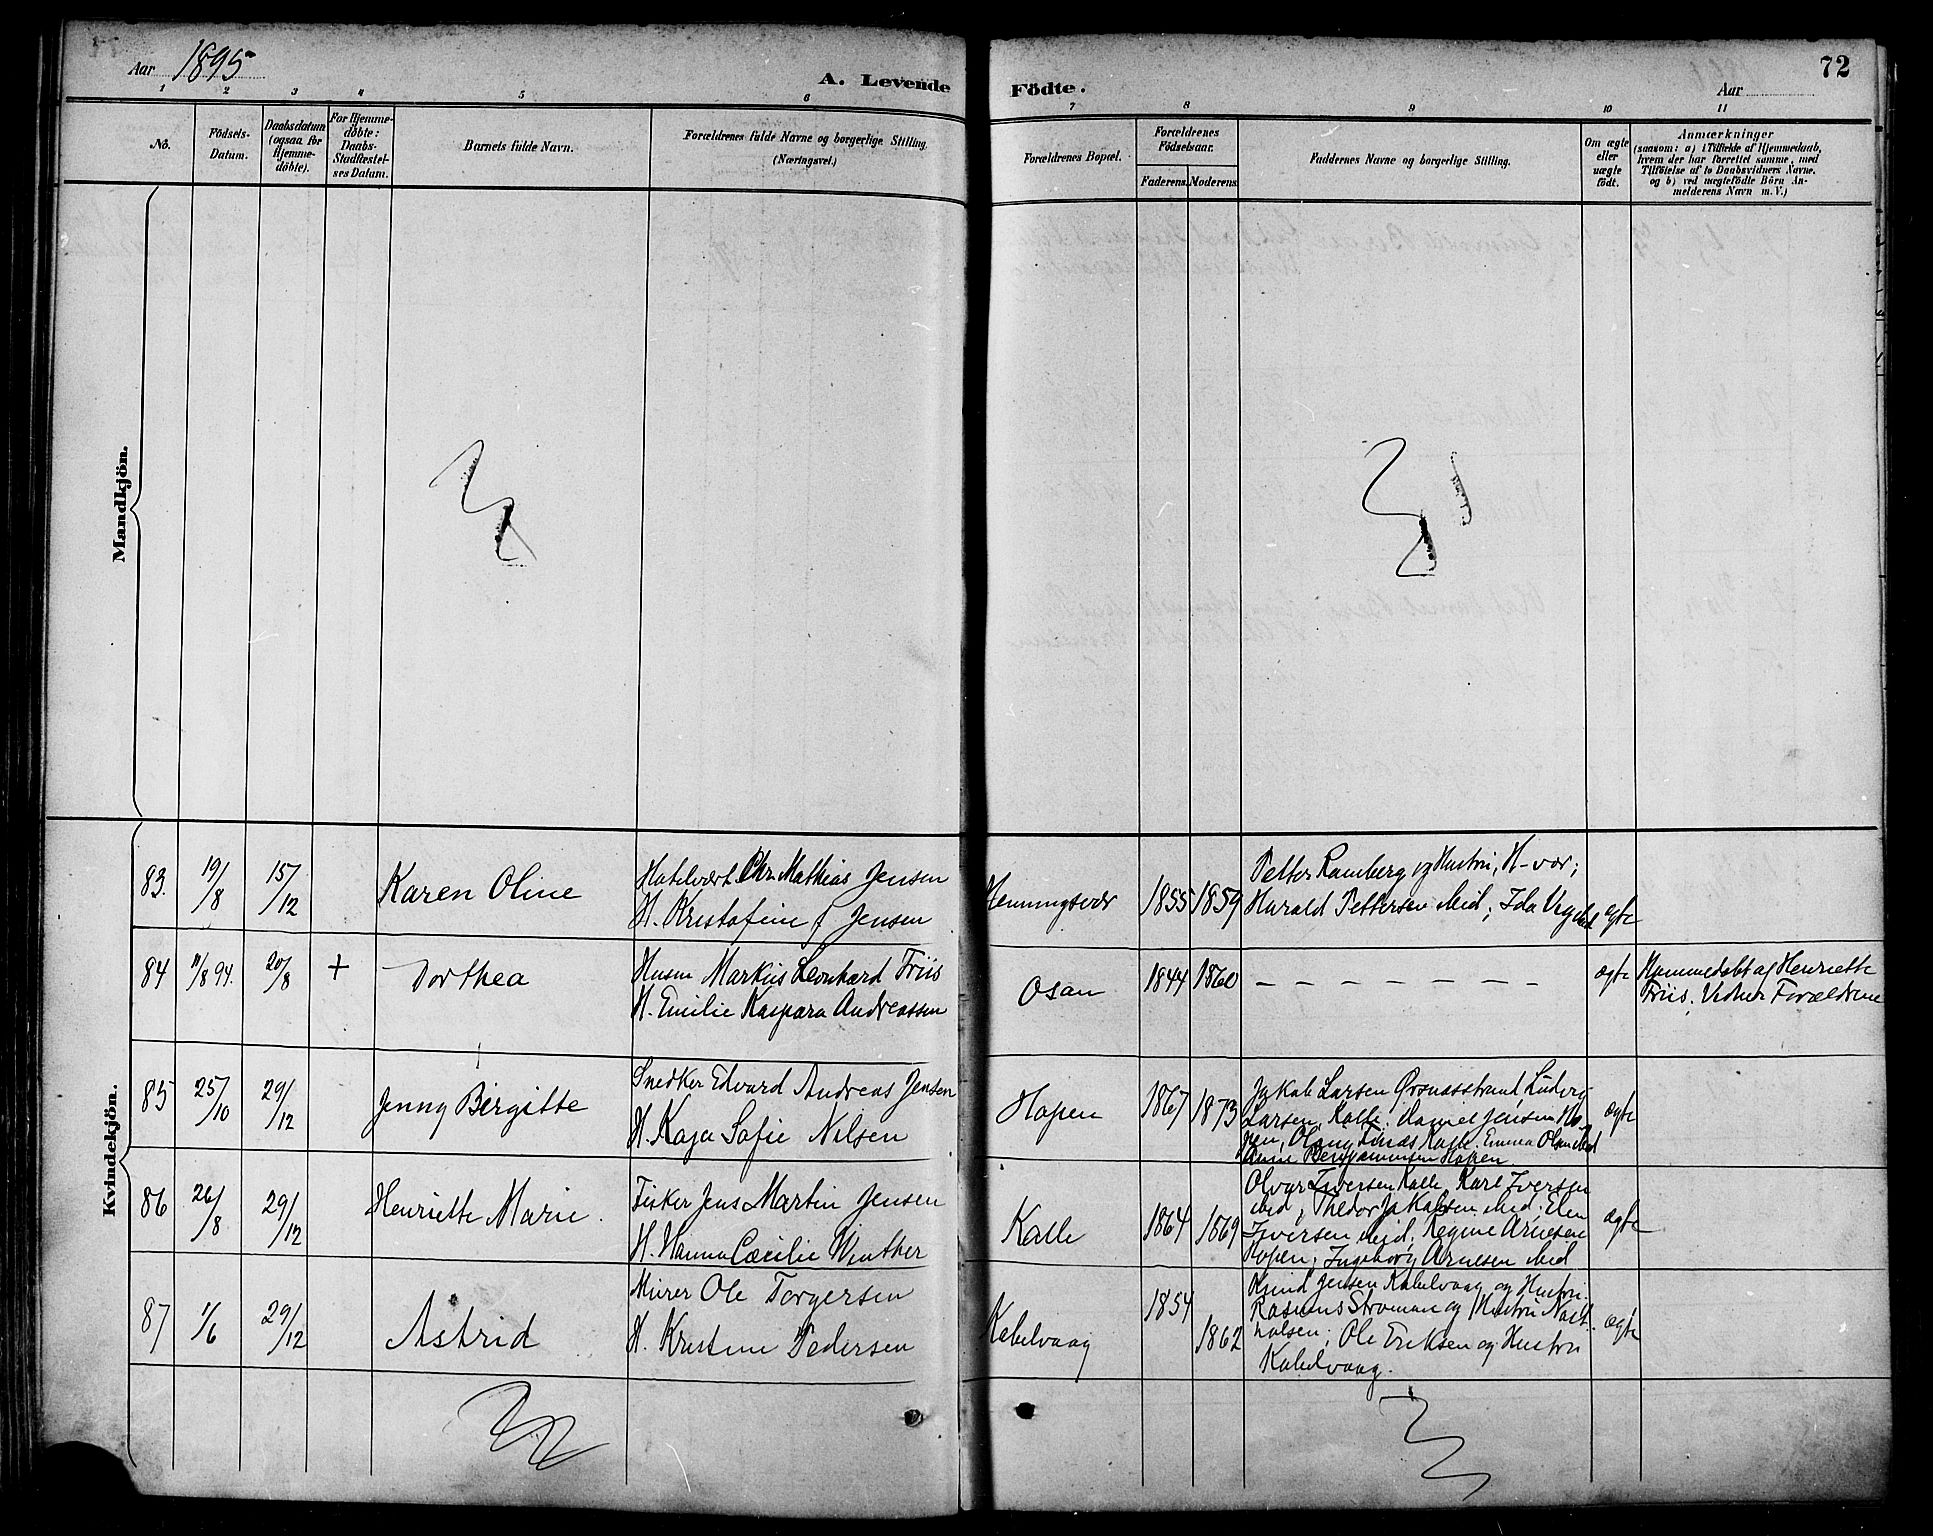 Aar 1895
A. Levende Födte.
Aar
72
1 2 3 4 5 6 7 8 9 10 11
No.
Födsels-
Datum.
Daabsdatum
(ogsaa for
Hjemme-
döbte).
For Hjemme-
döbte:
Daabs-
Stadfæstel-
ses Datum.
Barnets fulde Navn.
Forældrenes fulde Navne og borgerlige Stilling.
(Næringsvei.)
Forældrenes Bopæl.
Forældrenes
Födselsaar.
Faderens.
Moderens.
Faddernes Navne og borgerlige Stilling.
Om ægte
eller
uægte
født.
Anmærkninger
(saasom: a) i Tilfælde af Hjemmedaab,
hvem der har forrettet samme, med
Tilföielse af to Daabsvidners Navne,
og b) ved uægtefödte Börn An-
melderens Navn m. V.)
Mandkjön.
Kvindekjön.
83. 19/8 15/12 Karen Oline
Hotelvært Chr. Mathias Jensen
H. Kristofine Jensen
Henningsvær 1855 1859
Petter Ramberg og Hustru, H-vær;
Harald Pettersen ibid; Ida
ægte
84 11/8 94. 20/8 + Dorthea
Husm Markus Leonhard Friis
H. Emilie Kaspara Andreassen
Osan 1844 1860
— — — — — — —
ægte
Hjemmedøbt af Henriette
Friis. Vidner Forældrene
85 25/10 29/12 Jenny Birgitte
Snedker Edvard Andreas Jensen
H. Kaja Sofie Nilsen
Hopen 1867 1873
Jakob Larsen Ørsnæsstrand, Ludvig
Larsen, Kalle. Daniel Jensen, Ho-
pen, Kalle. Emma Olsen ibid
Benjaminsen Hopen
ægte
86 26/8 29/12 Henriette Marie.
Fisker Jens Martin Jensen
H. Hanna Cæcilie Winther
Kalle 1864 1869
Iversen Kalle, Karl Iversen
ibid; Thedor Jakobsen ibid; Elen
Iversen ibid; Regine Arnesen
Hopen; Ingeborg Arnesen ibid
ægte
87 11/6 29/12 Astrid
Murer Ole Torgersen
H. Kristine Pedersen
Kabelvaag 1854 1862
Jensen Kabelvaag og Hustru.
Rasmus Strøman og Hustru
Ole Eriksen og Hustru
Kabelvaag.
ægte